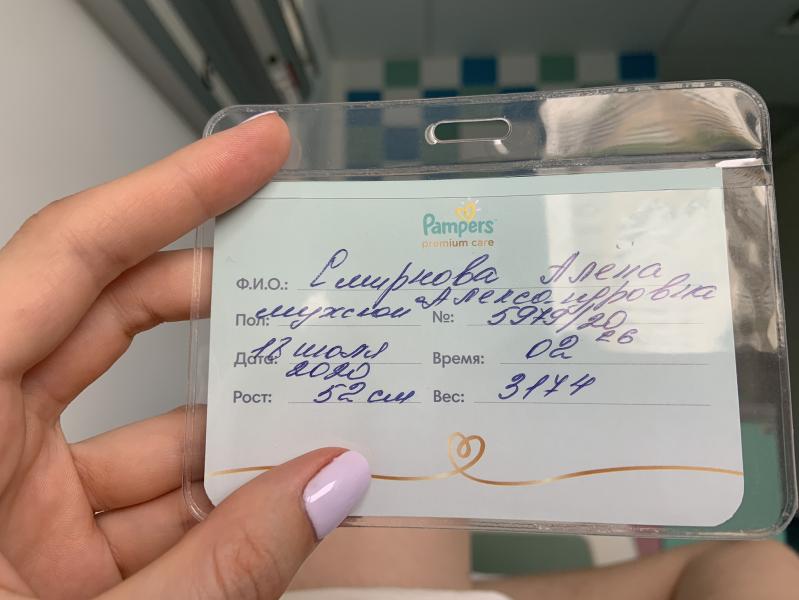 Pampers
premium care
Ф.И.О.: Смирнова Алена
Александровна
Пол: мужской №: 5979/20
Дата: 13 июля Время: 02 26
2020
Рост: 52 см Вес: 3174